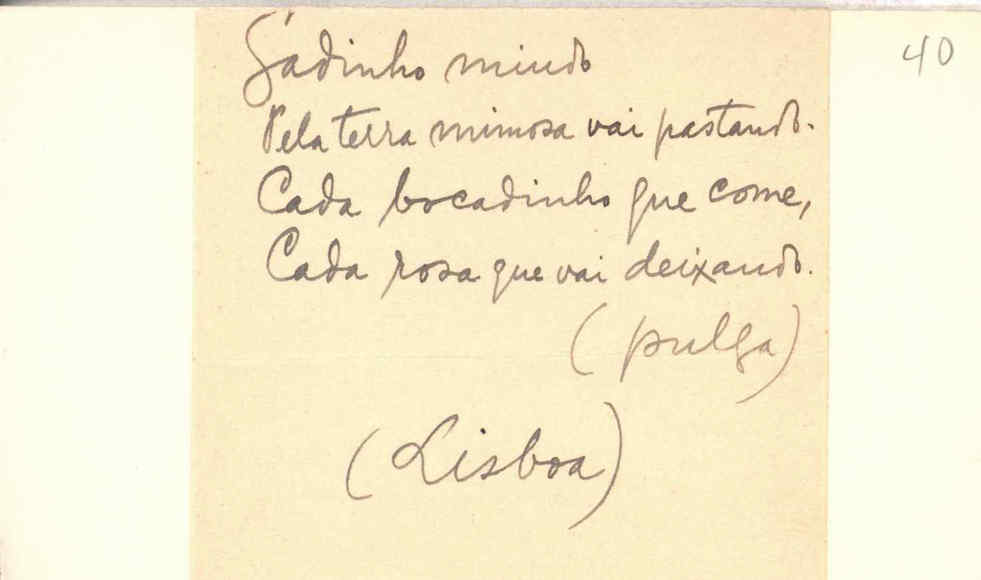 40
Gadinho miudo
Pela terra mimosa vai pastando.
Cada bocadinho que come,
Cada rosa que vai deixando.
(pulga)
(Lisboa)